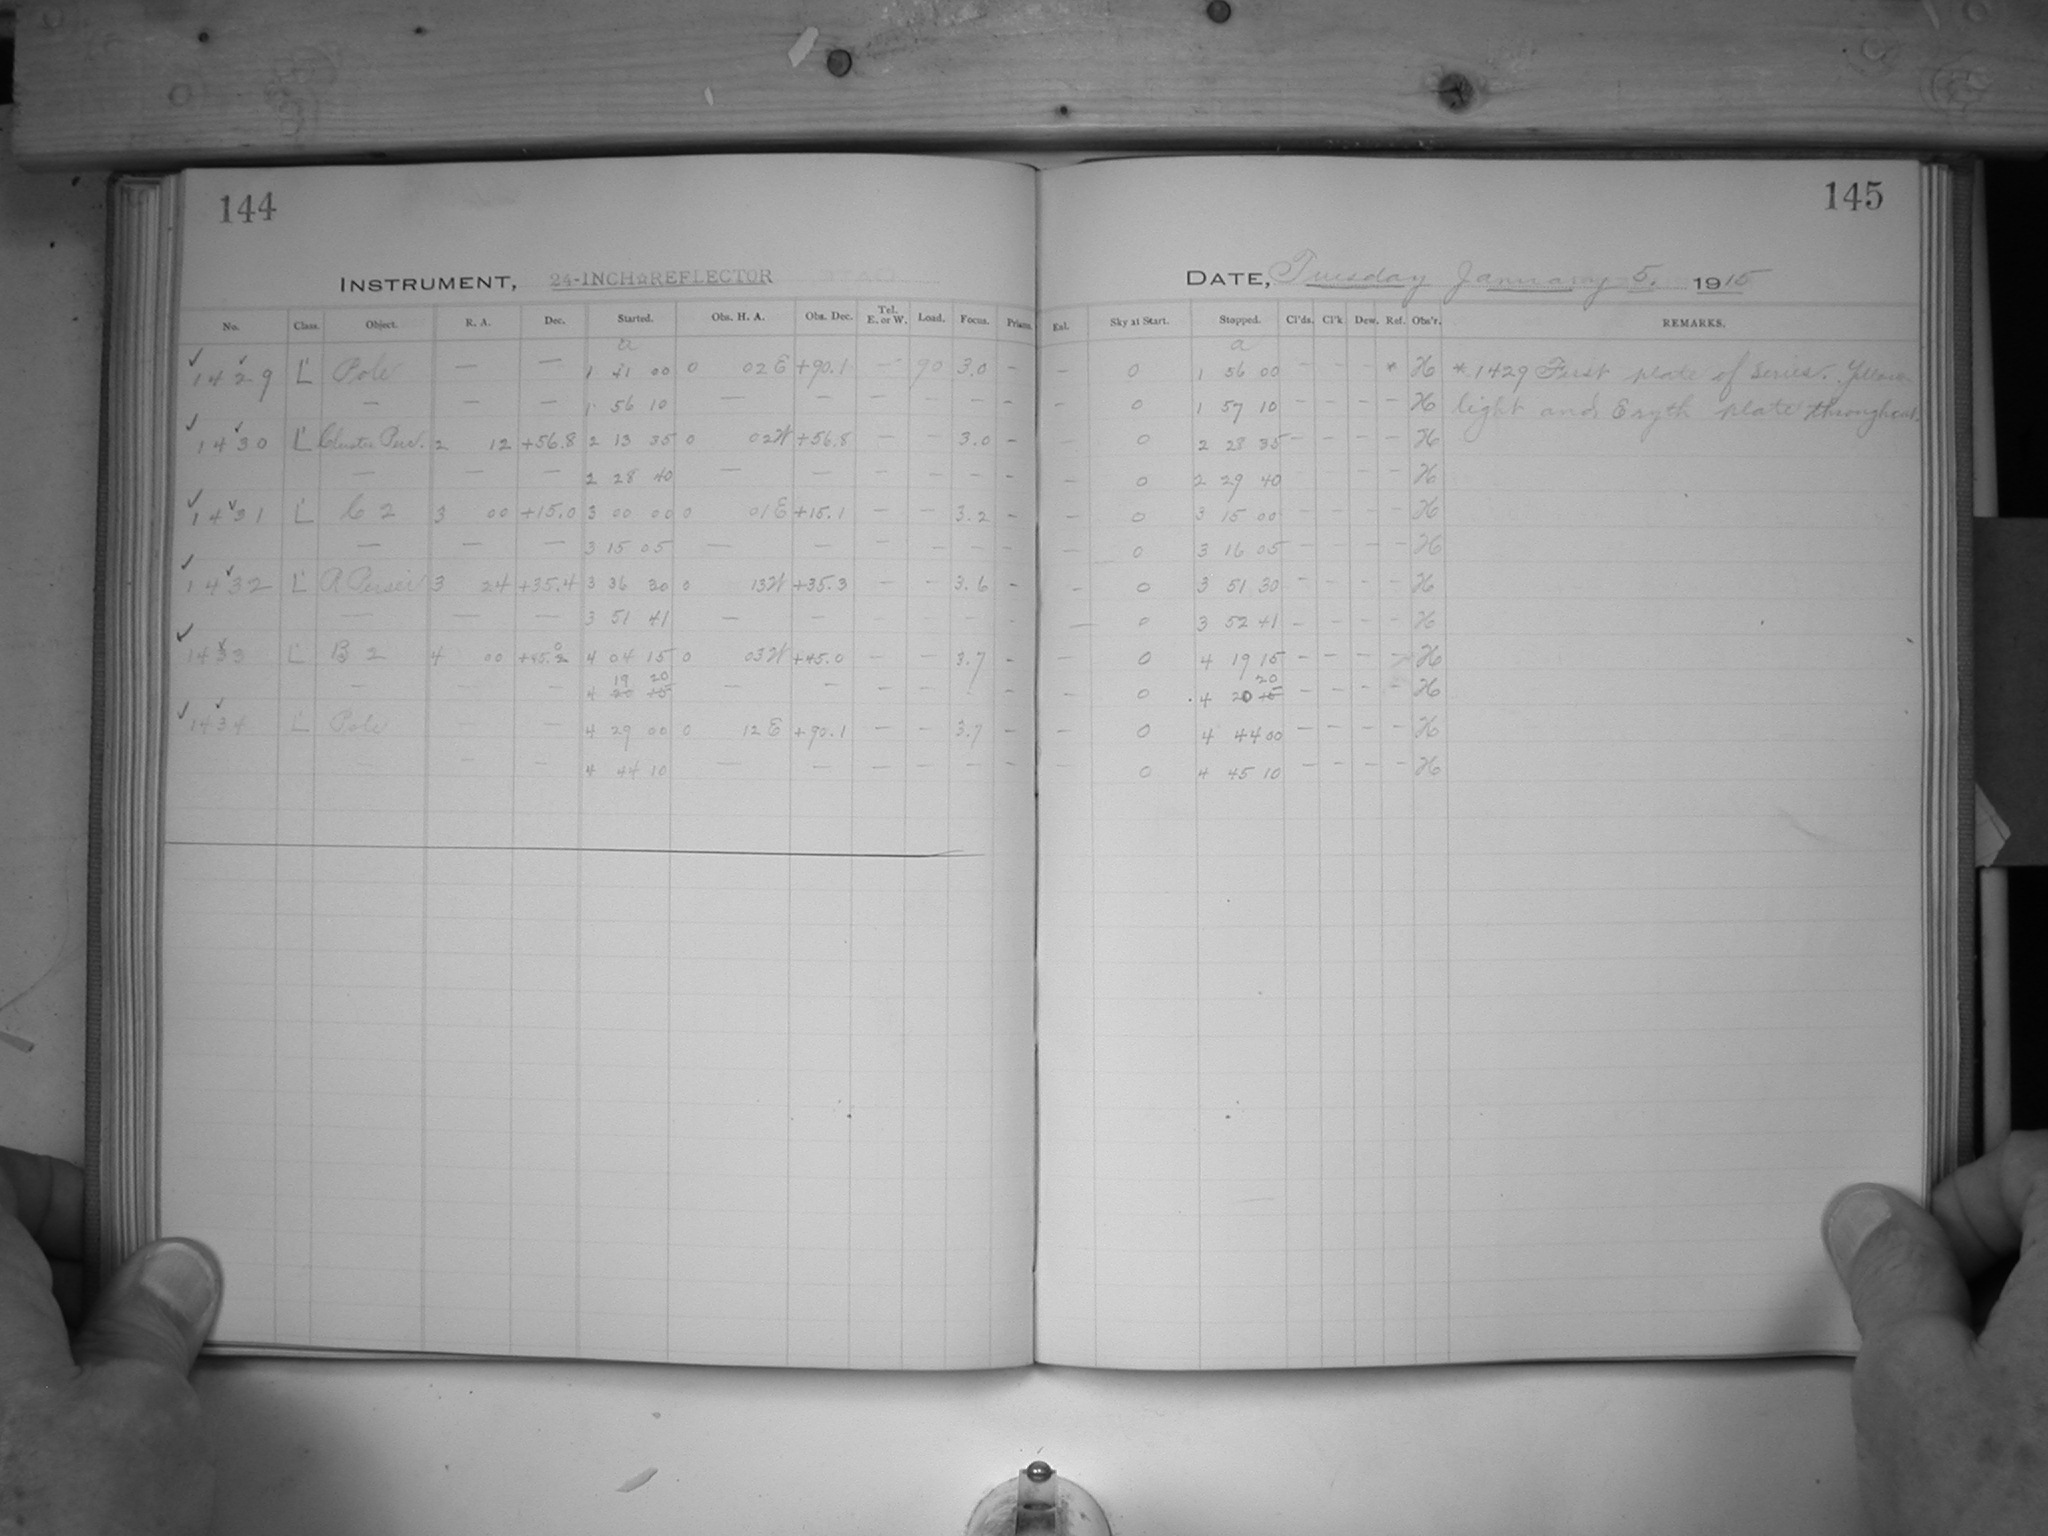 144
145
INSTRUMENT, 24-INCH REFLECTOR
DATE, Tuesday January 5. 1915
No. Class. Object. R. A. Dec. Started. Obs. H. A. Obs. Dec. Tel. E. or W. Load. Focus. Prism. Eal. Sky at Start. Stopped. Cl'ds. Cl'k. Dew. Ref. Obs'r. REMARKS.
a a
1429 L' Pole — — 1 41 00 0 02 E +90.1 — 90 3.0 — — 0 1 56 00 — — — * H *1429 First plate of series. Yellow
— — — 1 56 10 — — — — — — — 0 1 57 10 — — — — H light and Eryth plate throughout.
1430 L' Cluster Pers. 2 12 +56.8 2 13 35 0 02 W +56.8 — — 3.0 — — 0 2 28 35 — — — — H
— — — 2 28 40 — — — — — — — 0 2 29 40 — — H
1431 L' C 2 3 00 +15.0 3 00 00 0 01 E +15.1 — — 3.2 — — 0 3 15 00 — — — — H
— — — 3 15 05 — — — — — — — 0 3 16 05 — — — — H
1432 L' A Persei 3 24 +35.4 3 36 30 0 13 W +35.3 — — 3.6 — — 0 3 51 30 — — — — H
— — — 3 51 41 — — — — — — — 0 3 52 41 — — — — H
1433 L' B 2 4 00 +45.0 4 04 15 0 03 W +45.0 — — 3.7 — — 0 4 19 15 — — — H
— — — 4 19 20 — — — — — — — 0 4 20 20 — — — — H
1434 L' Pole — — 4 29 00 0 12 E +90.1 — — 3.7 — — 0 4 44 00 — — — — H
— — 4 44 10 — — — — — — — 0 4 45 10 — — — — H